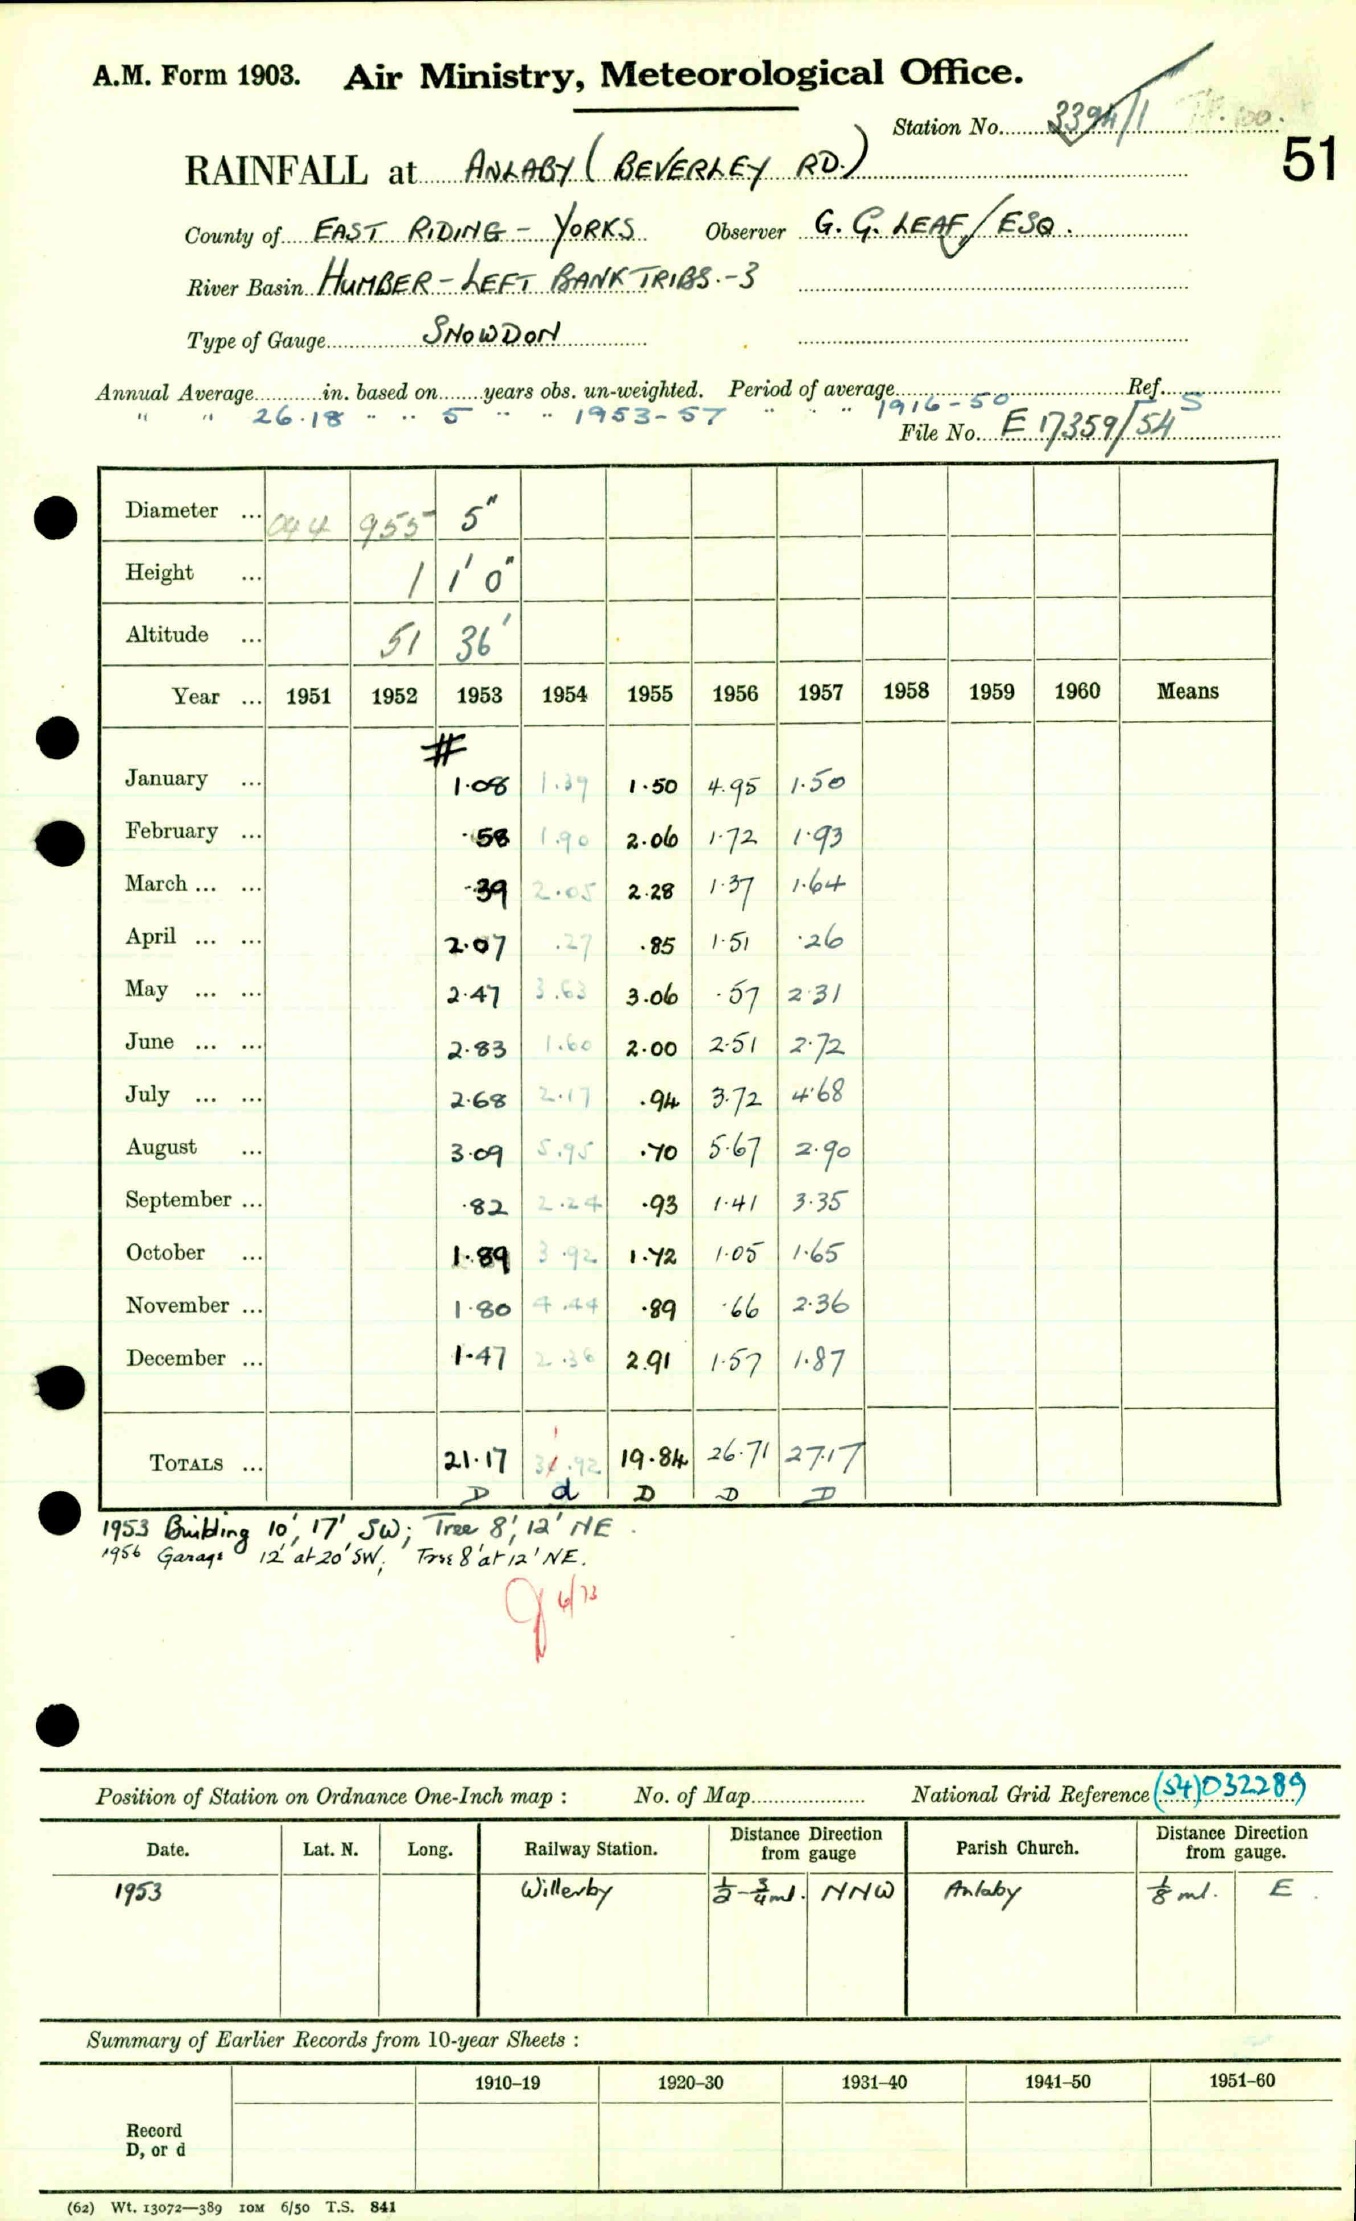 A.M. Form 1903. Air Ministry, Meteorological Office.
Station No. 3394/1
51
RAINFALL at ANLABY (BEVERLEY RD.)
County of EAST RIDING - YORKS Observer G. G. LEAF, ESQ.
River Basin HUMBER - LEFT BANK TRIBS. - 3
Type of Gauge SNOWDON
Annual Average in. based on years obs. un-weighted. Period of average Ref.
" " 26.18 " " 5 " " 1953-57 " " " 1916-50 S
File No. E 17359/54
Diameter ... 044 955 5"
Height ... 1 1' 0"
Altitude ... 51 36'
Year ... 1951 1952 1953 1954 1955 1956 1957 1958 1959 1960 Means
#
January ... 1.08 1.39 1.50 4.95 1.50
February ... .58 1.90 2.06 1.72 1.93
March ... ... .39 2.05 2.28 1.37 1.64
April ... ... 2.07 .27 .85 1.51 .26
May ... ... 2.47 3.63 3.06 .57 2.31
June ... ... 2.83 1.60 2.00 2.51 2.72
July ... ... 2.68 2.17 .94 3.72 4.68
August ... 3.09 5.95 .70 5.67 2.90
September ... .82 2.24 .93 1.41 3.35
October ... 1.89 3.92 1.72 1.05 1.65
November ... 1.80 4.44 .89 .66 2.36
December ... 1.47 2.36 2.91 1.57 1.87
TOTALS ... 21.17 31.92 19.84 26.71 27.17
D d D D D
1953 Building 10', 17' SW; Tree 8', 12' NE.
1956 Garage 12' at 20' SW; Tree 8' at 12' NE.
6/73
Position of Station on Ordnance One-Inch map : No. of Map National Grid Reference (54)032289
Date. Lat. N. Long. Railway Station. Distance from Direction gauge Parish Church. Distance from Direction gauge.
1953 Willerby 1/2 - 3/4 ml. NNW Anlaby 1/8 ml. E.
Summary of Earlier Records from 10-year Sheets :
1910–19 1920–30 1931–40 1941–50 1951–60
Record
D, or d
(62) Wt. 13072—389 10M 6/50 T.S. 841